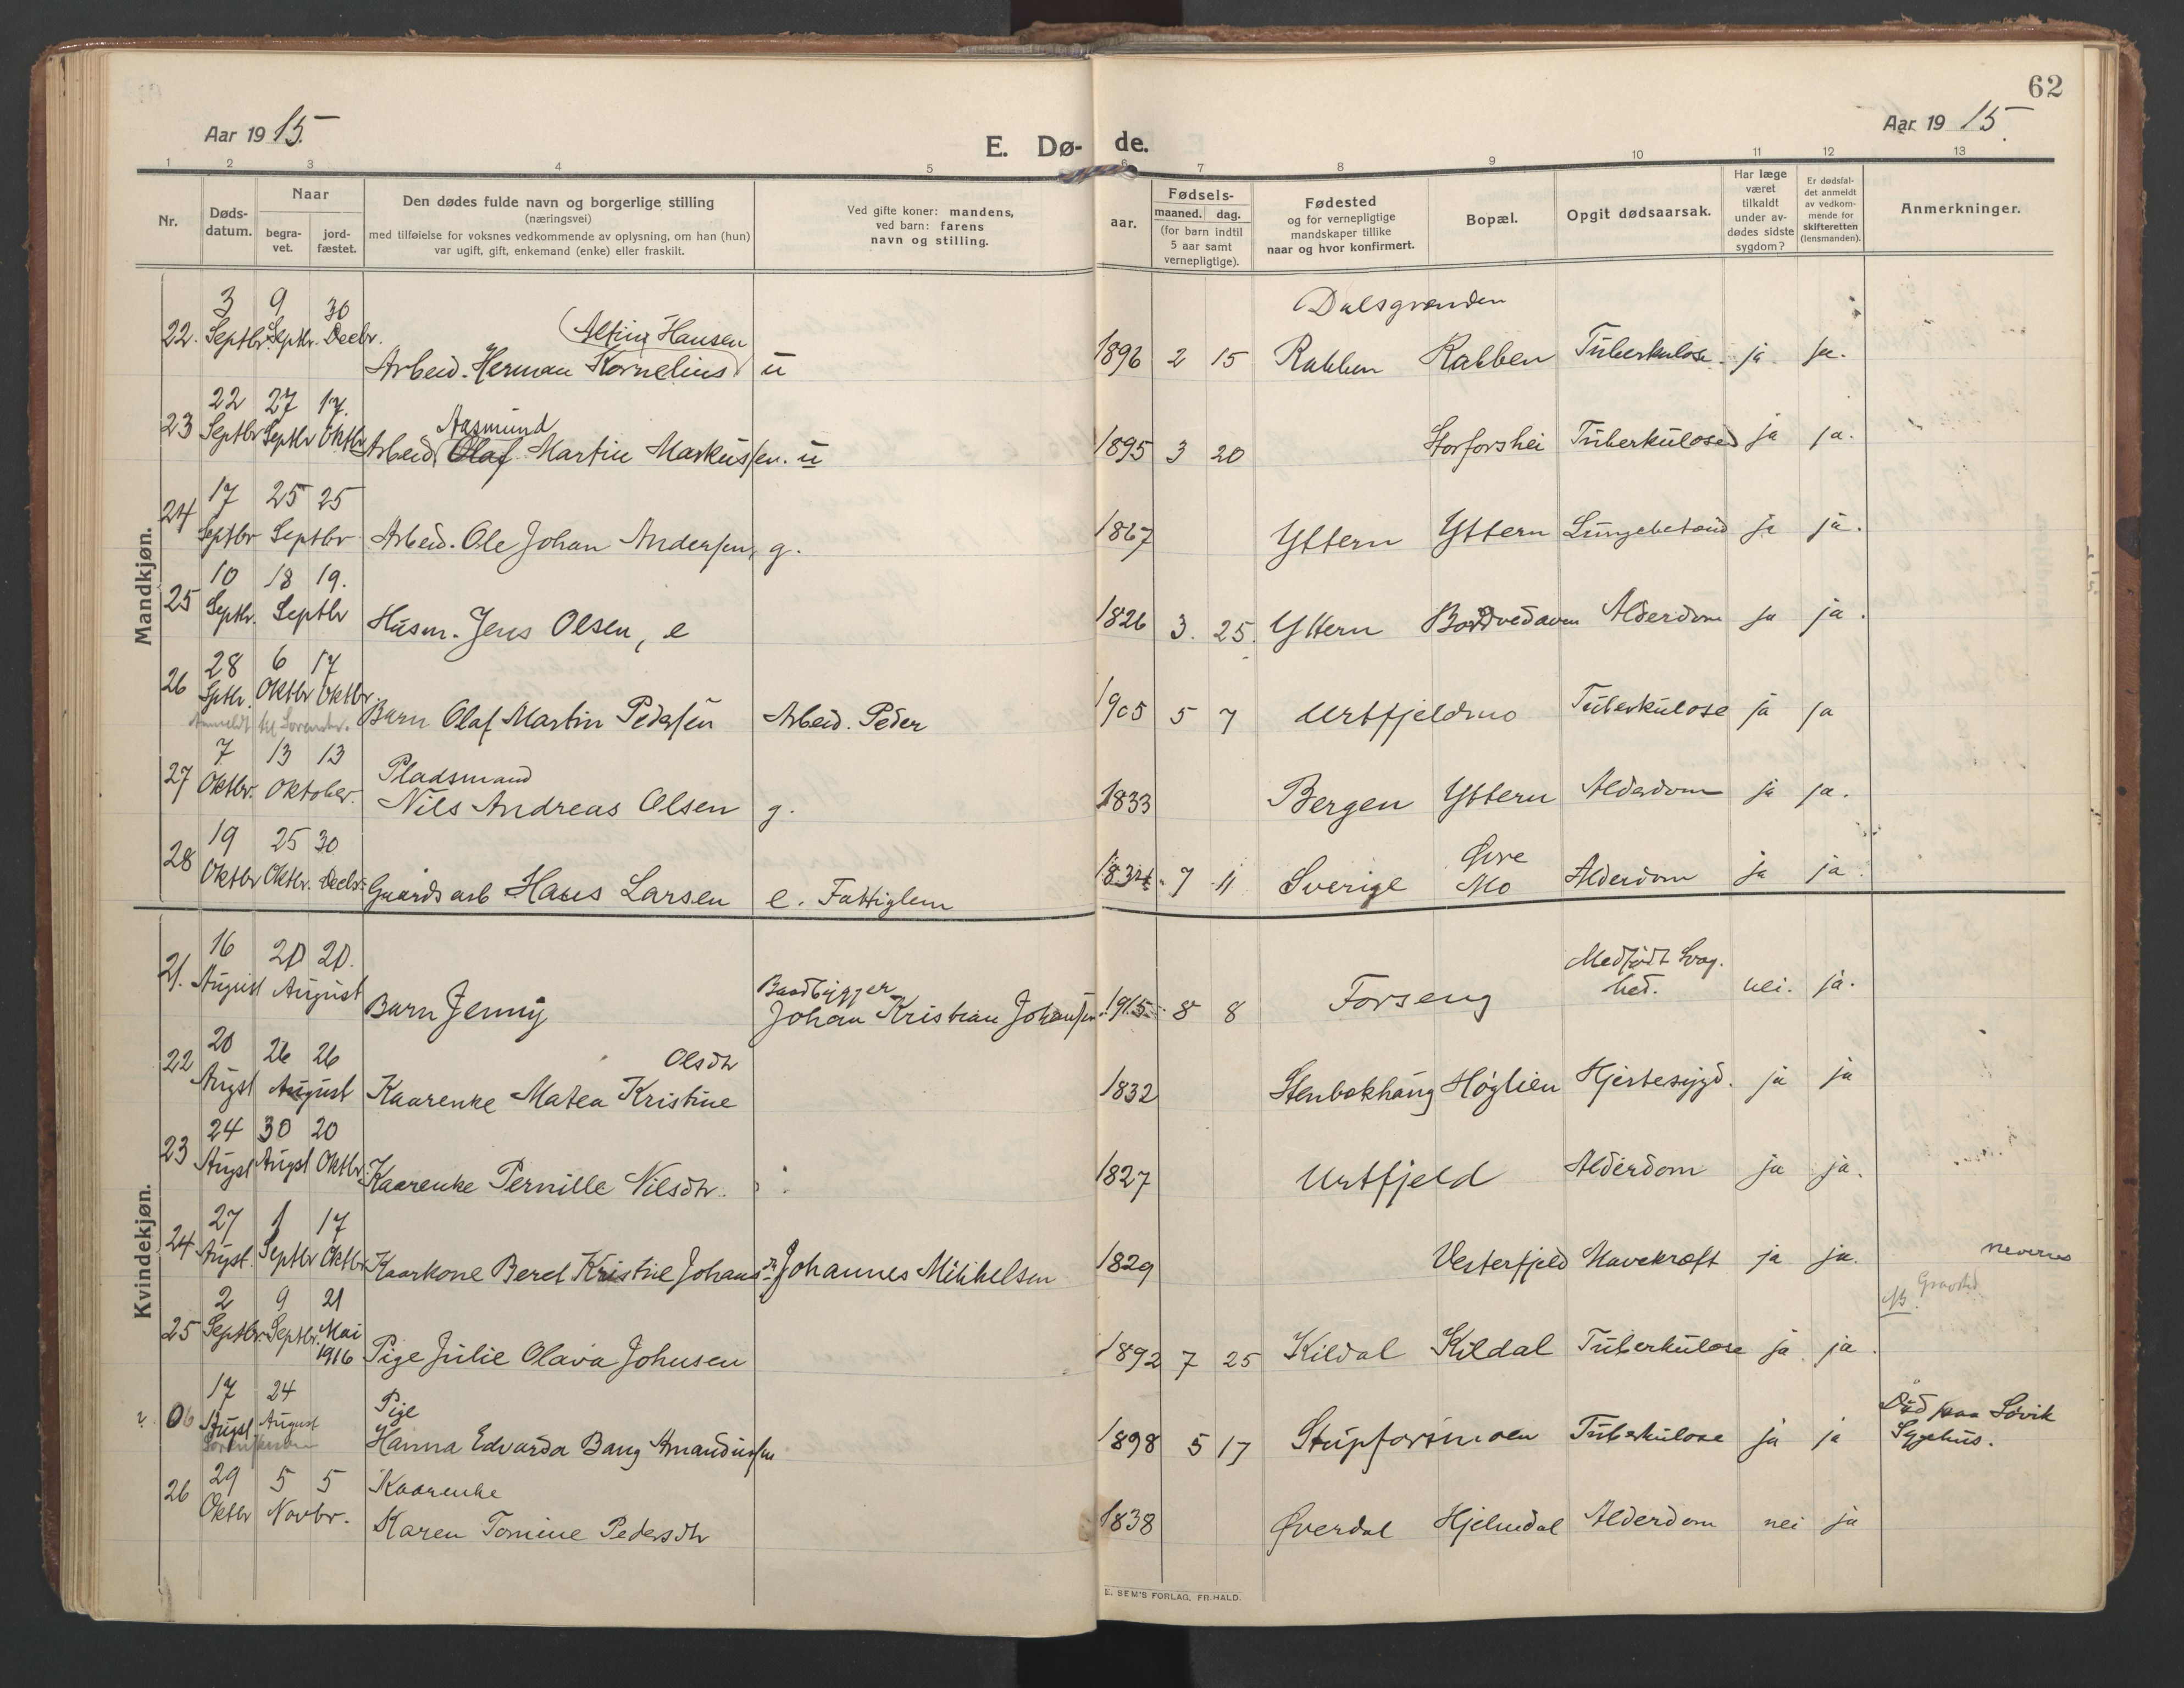 62
Aar 1915. E. Dø- de. Aar 1915.
1 2 3 4 5 6 7 8 9 10 11 12 13
Nr.
Døds-
datum.
Naar
begra-
vet.
jord-
fæstet.
Den dødes fulde navn og borgerlige stilling
(næringsvei)
med tilføielse for voksnes vedkommende av oplysning, om han (hun)
var ugift, gift, enkemand (enke) eller fraskilt.
Ved gifte koner: mandens,
ved barn: farens
navn og stilling.
Fødsels-
aar.
maaned. dag.
(for barn indtil
5 aar samt
vernepligtige).
Fødested
og for vernepligtige
mandskaper tillike
naar og hvor konfirmert.
Bopæl.
Opgit dødsaarsak.
Har læge
været
tilkaldt
under av-
dødes sidste
sygdom?
Er dødsfal-
det anmeldt
av vedkom-
mende for
skifteretten
(lensmanden).
Anmerkninger.
Mandkjøn.
3 9 30 Dalsgrenden
(Alting Hansen
22. Septbr. Septbr. Decbr. Arbeid. Herman Kornelius) u 1896 2 15 Rabben Rabben Tuberkulose. ja ja.
22 27 17. Aasmund
23 Septbr Septbr Oktbr Arbeid Olaf Martin Markussen. u 1895 3 20 Storforshei Tuberkulose ja ja.
17 25 25
24 Septbr Septbr Arbeid. Ole Johan Andersen, g. 1867 Yttern Yttern Lungebetænd ja ja.
10 18 19.
25 Septbr. Septbr Husm. Jens Olsen, e 1826 3. 25. Yttern Alderdom ja ja.
28 6 17
26 Sptbr. Oktbr Oktbr. Barn Olaf Martin Pedersen Arbeid. Peder 1905 5 7 Urtfjeldmo Tuberkulose ja ja
Anmeldt
7 13 13 Pladsmand
27 Oktbr. Oktober. Nils Andreas Olsen g. 1833 Bergen Yttern Alderdom ja ja.
19 25 30 Øvre
28 Oktbr Oktbr. Decbr. Gaardsarb Hans Larsen e. Fattiglem 1834 7 11 Sverige Mo Alderdom ja ja.
Kvindekjøn.
16 20 20. Baadbygger Medfødt Svag-
21. August August Barn Jenny Johan Kristian Johansen 1915 8 8 Forseng hed. nei. ja.
20 26 26 Olsdtr
22 Augst August Kaarenke Matea Kristine 1832 Stenbekhaug Høglien Hjertesygd. ja ja
24 30 20
23 Augst Augst Oktbr. Kaarenke Pernille Nilsdtr. 1827 Urtfjeld Alderdom ja ja.
27 1 17
24 Augst. Septbr Oktbr Kaarkone Beret Kristine Johansdtr Johannes Mikkelsen 1829 Vesterfjeld Mavekræft ja ja. Nevernes
2 9 21 NB. Gravsted
25 Septbr. Septbr. Mai
1916 Pige Julie Olava Johnsen 1892 7 25 Kildal Kildal Tuberkulose ja ja.
17 24 Pige Død paa Søvik
Augst August Hanna Edvarda Bang Amandussen 1898 5 17 Stupforsmoen Tuberkulose ja ja Sygehus.
29 5 5 Kaarenke
26 Oktbr Novbr. Karen Tomine Pedersdtr 1838 Øverdal Hjelmdal Alderdom nei ja
E. SEM'S FORLAG, FR.HALD.